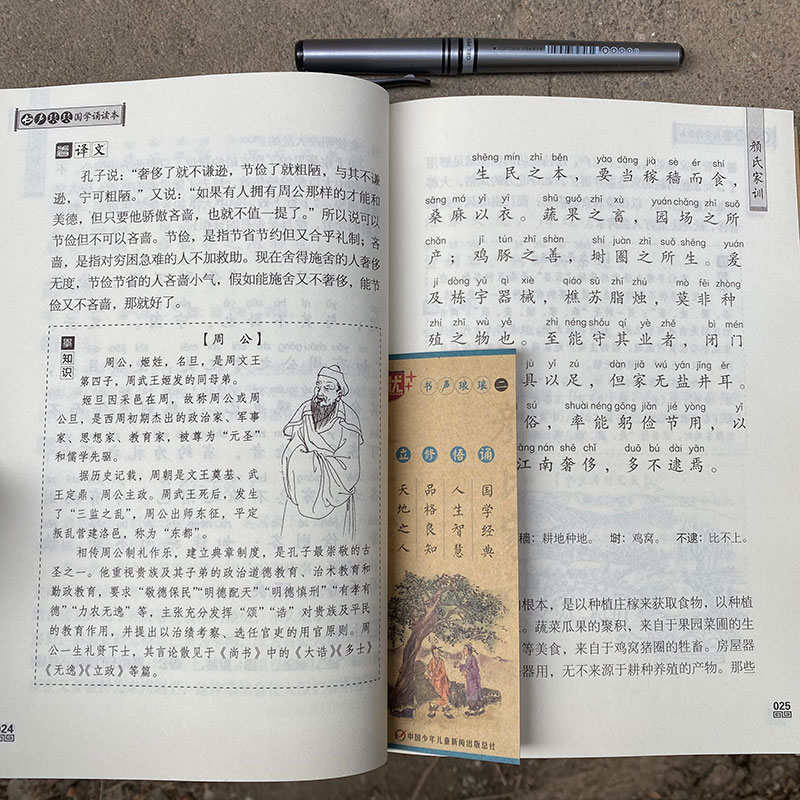 GEL PEN
书声琅琅国学诵读本
译文
孔子说：“奢侈了就不谦逊，节俭了就粗陋，与其不谦
逊，宁可粗陋。”又说：“如果有人拥有周公那样的才能和
美德，但只要他骄傲吝啬，也就不值一提了。”所以说可以
节俭但不可以吝啬。节俭，是指节省节约但又合乎礼制；吝
啬，是指对穷困急难的人不加救助。现在舍得施舍的人奢侈
无度，节俭节省的人吝啬小气，假如能施舍又不奢侈，能节
俭又不吝啬，那就好了。
知识
【周公】
周公，姬姓，名旦，是周文王
第四子，周武王姬发的同母弟。
姬旦因采邑在周，故称周公或周
公旦，是西周初期杰出的政治家、军事
家、思想家、教育家，被尊为“元圣”
和儒学先驱。
据历史记载，周朝是文王奠基、武
王定鼎、周公主政。周武王死后，发生
了“三监之乱”，周公出师东征，平定
叛乱营建洛邑，称为“东都”。
相传周公制礼作乐，建立典章制度，是孔子最崇敬的古
圣之一。他重视贵族及其子弟的政治道德教育、治术教育和
勤政教育，要求“敬德保民”“明德配天”“明德慎刑”“有孝有
德”“力农无逸”等，主张充分发挥“颂”“诰”对贵族及平民
的教育作用，并提出以治绩考察、选任官吏的用官原则。周
公一生礼贤下士，其言论散见于《尚书》中的《大诰》《多士》
《无逸》《立政》等篇。
024
颜氏家训
shēng mín zhī běn yào dāng jià sè ér shí
生民之本，要当稼穑而食，
sāng má yǐ yī shū guǒ zhī xù yuán chǎng zhī suǒ
桑麻以衣。蔬果之畜，园场之所
chǎn jī tún zhī shàn shí juàn zhī suǒ shēng yuán
产；鸡豚之善，埘圈之所生。爰
jí dòng yǔ qì xiè qiáo sū zhī zhú mò fēi zhòng
及栋宇器械，樵苏脂烛，莫非种
zhí zhī wù yě zhì néng shǒu qí yè zhě bì mén
殖之物也。至能守其业者，闭门
jù yǐ zú dàn jiā wú yán jǐng ěr
具以足，但家无盐井耳。
sú shuài néng gōng jiǎn jié yòng yǐ
俗，率能躬俭节用，以
nán shē chǐ duō bú dài yān
江南奢侈，多不逮焉。
穑：耕地种地。 埘：鸡窝。 不逮：比不上。
根本，是以种植庄稼来获取食物，以种植
。蔬菜瓜果的聚积，来自于果园菜圃的生
等美食，来自于鸡窝猪圈的牲畜。房屋器
器用，无不来源于耕种养殖的产物。那些
025
书声琅琅 二
立 修 悟 诵
国学经典
人生智慧
品格良知
天地之人
中国少年儿童新闻出版总社